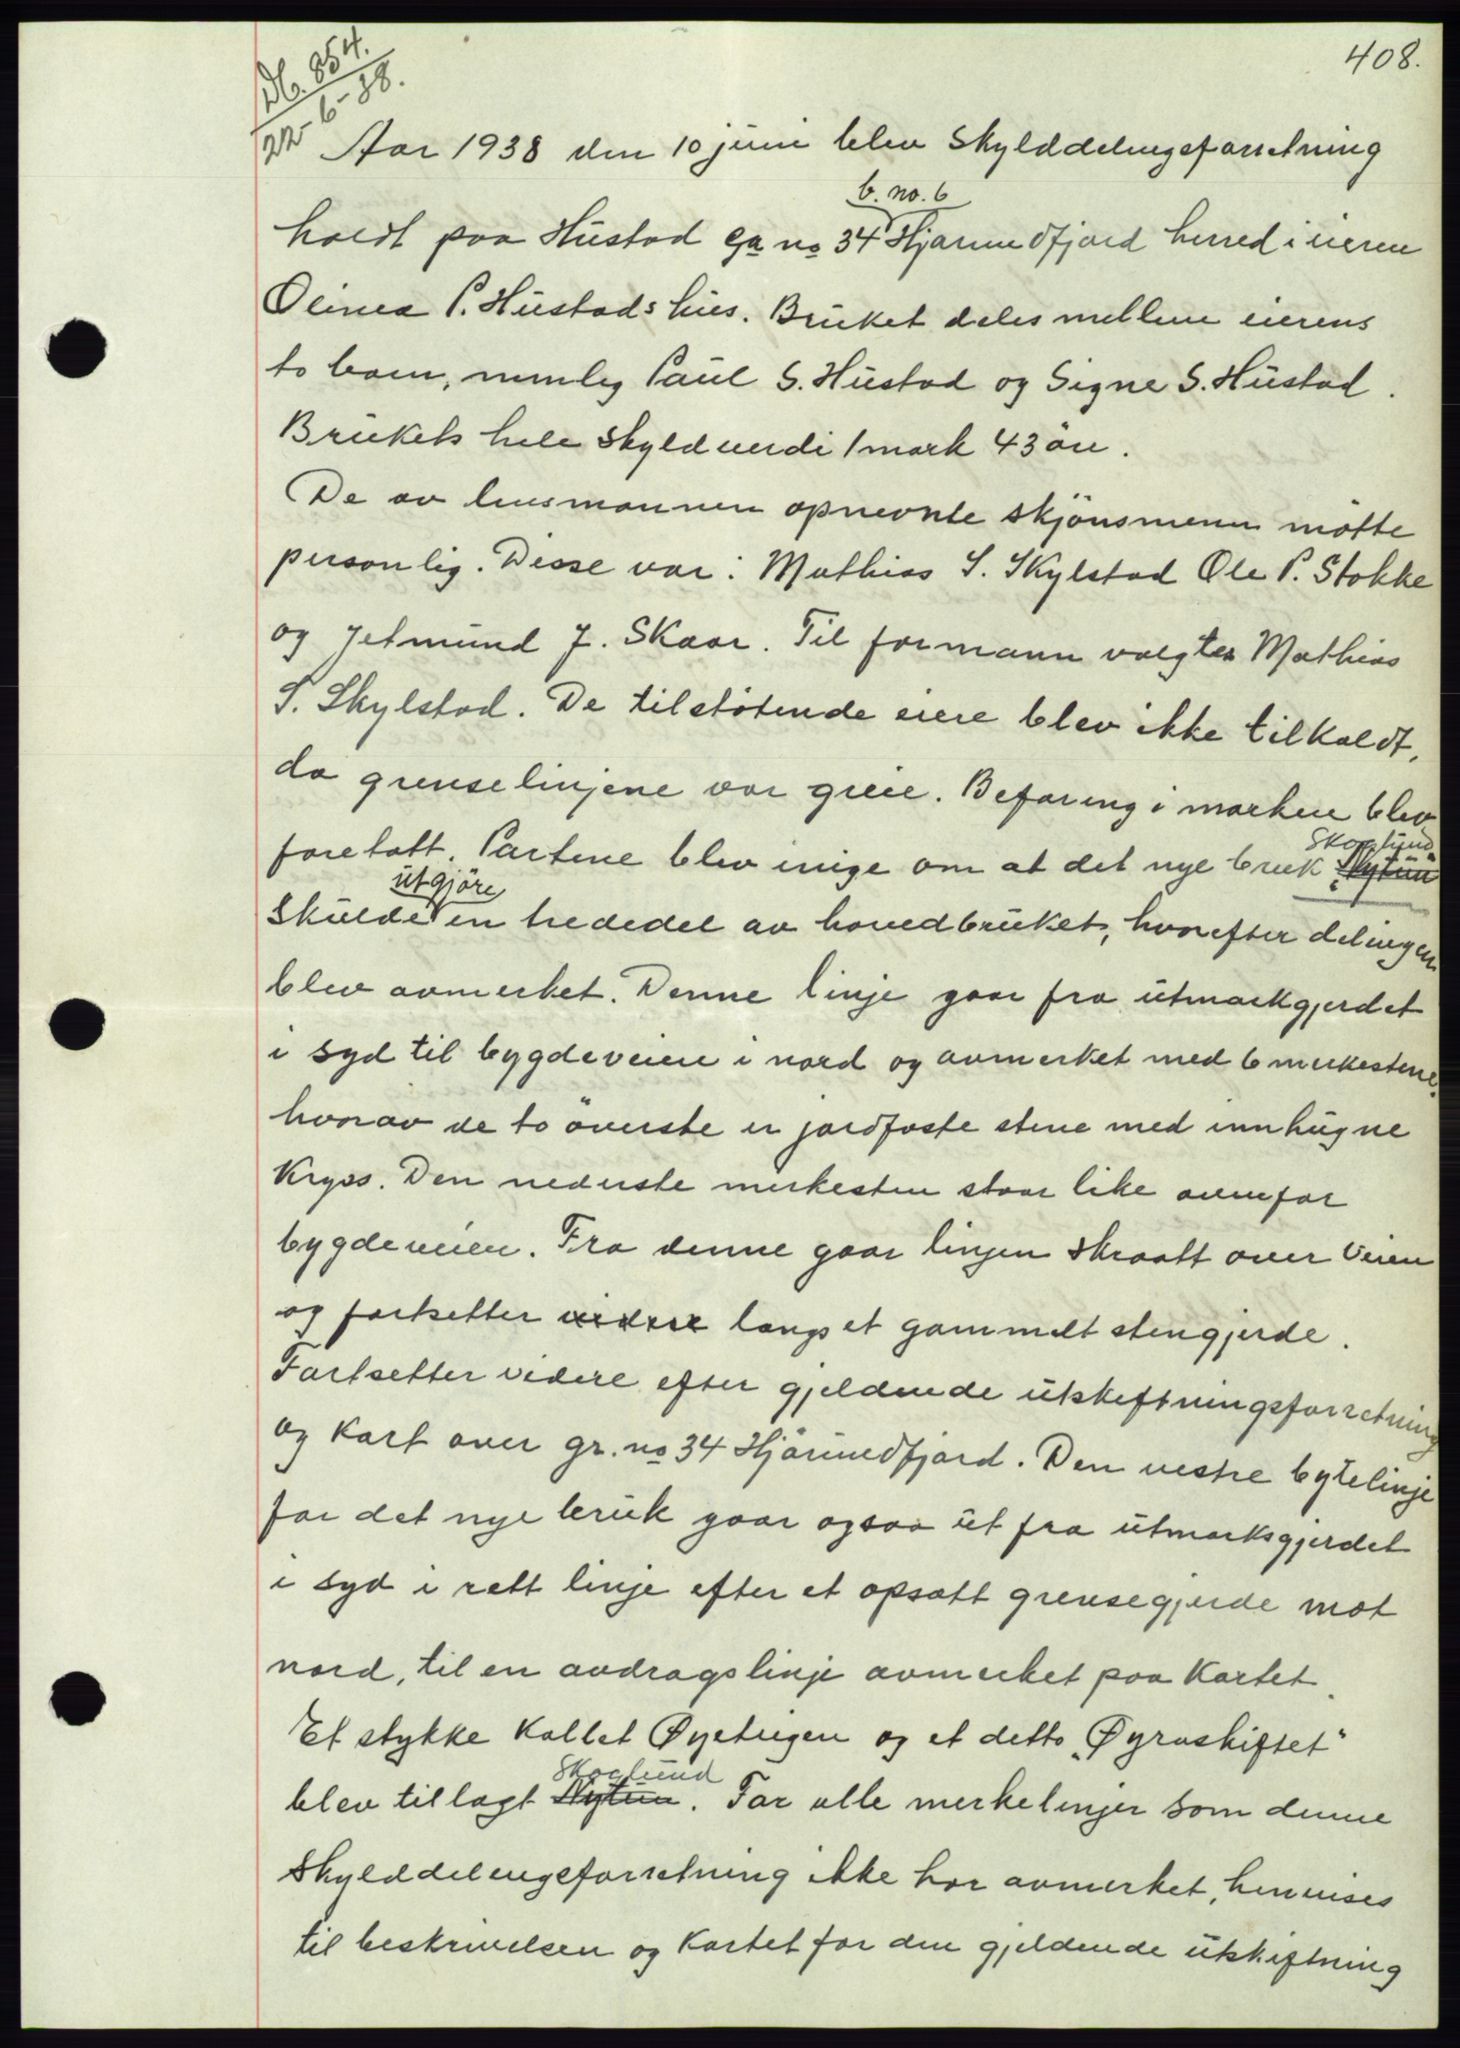 408.
Db. 854.
22-6-38.
Aar 1938 den 10 juni blev skylddelingsforretning
b. no. 6
holdt paa Hustad ga no 34 Hjørundfjord herred i eieren
Olinea P. Hustads hus. Bruket deles mellem eierens
to barn, nemlig Paul S. Hustad og Signe S. Hustad.
Brukets hele skyldverdi 1 mark 43 øre.
De av lensmannen opnevnte skjönsmenn møtte
personlig. Disse var: Mathias S. Skylstad Ole P. Stokke
og Jetmund J. Skaar. Til formann valgtes Mathias
S. Skylstad. De tilstötende eiere blev ikke tilkaldt,
da grenselinjene var greie. Befaring i marken blev
Skoglund
foretatt. Partene blev enige om at det nye bruk "Nytun"
utgjöre
skulde en trededel av hovedbruket, hvorefter delingen
blev avmerket. Denne linje gaar fra utmarkgjerdet
i syd til bygdeveien i nord og avmerket med 6 merkestene,
hvorav de to överste er jordfaste stene med innhugne
kryss. Den nederste merkesten staar like ovenfor
bygdeveien. Fra denne gaar linjen skraatt over veien
og fortsetter videre langs et gammelt stengjerde.
Fortsetter videre efter gjeldende utskiftningsforretning
og kart over gr. no 34 Hjörundfjord. Den vestre bytelinje
for det nye bruk gaar ogsaa ut fra utmarksgjerdet
i syd i rett linje efter et opsatt grensegjerde mot
nord, til en avdragslinje avmerket paa kartet.
Et stykke kallet Øyetrigen og et detto „Øyraskiftet"
Skoglund
blev tillagt Nytun. For alle merkelinjer som denne
skylddelingsforretning ikke har avmerket, henvises
til beskrivelsen og kartet for den gjeldende utskiftning